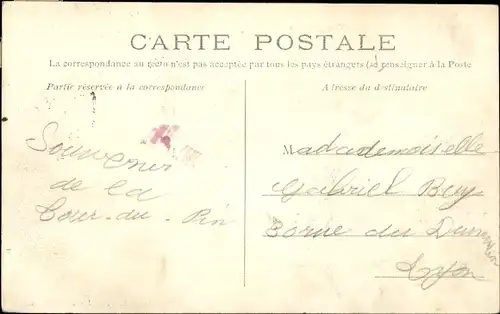 CARTE POSTALE
La correspondance au recto n'est pas acceptée par tous les pays étrangers (se renseigner à la Poste
Partie réservée à la correspondance
Adresse du destinataire
Souvenir
de la
Tour-du-Pin
Madademoiselle
Gabriel Buy
rue du
Lyon